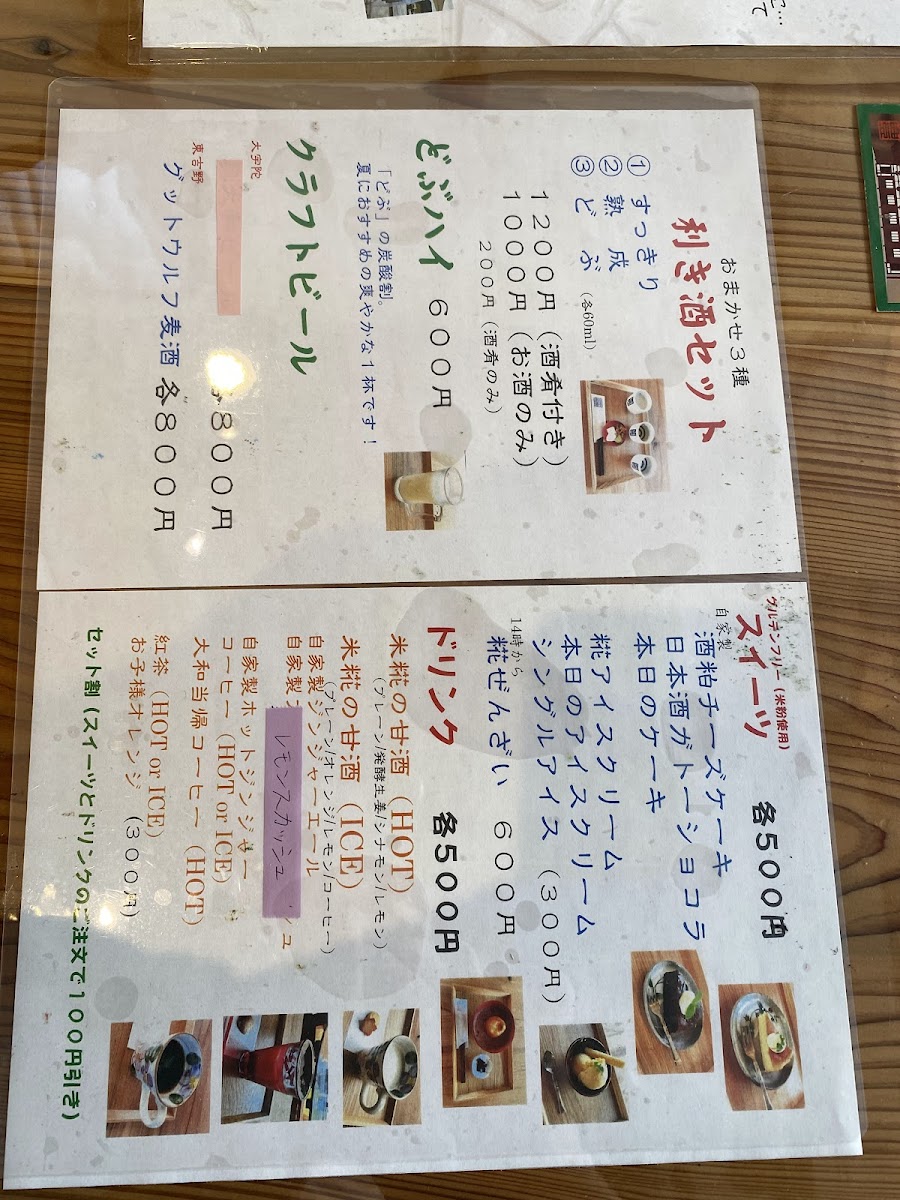 おまかせ3種
利き酒セット
① すっきり
② 熟成
③ どぶ
(各60ml)
1200円(酒肴付き)
1000円(お酒のみ)
200円(酒肴のみ)
どぶハイ 600円
「どぶ」の炭酸割。
夏におすすめの爽やかな1杯です！
クラフトビール
大宇陀
800円
東吉野
グットウルフ麦酒 各800円
グルテンフリー(米粉使用)
スイーツ 各500円
自家製
酒粕チーズケーキ
日本酒ガトーショコラ
本日のケーキ
糀アイスクリーム
本日のアイスクリーム
シングルアイス (300円)
14時から
糀ぜんざい 600円
ドリンク 各500円
米糀の甘酒(HOT)
(プレーン/発酵生姜/シナモン/レモン)
米糀の甘酒(ICE)
(プレーン/オレンジ/レモン/コーヒー)
自家製ジンジャーエール
自家製
レモンスカッシュ
シュ
自家製ホットジンジャー
コーヒー(HOT or ICE)
大和当帰コーヒー(HOT)
紅茶(HOT or ICE)
お子様オレンジ (300円)
セット割(スイーツとドリンクのご注文で100円引き)